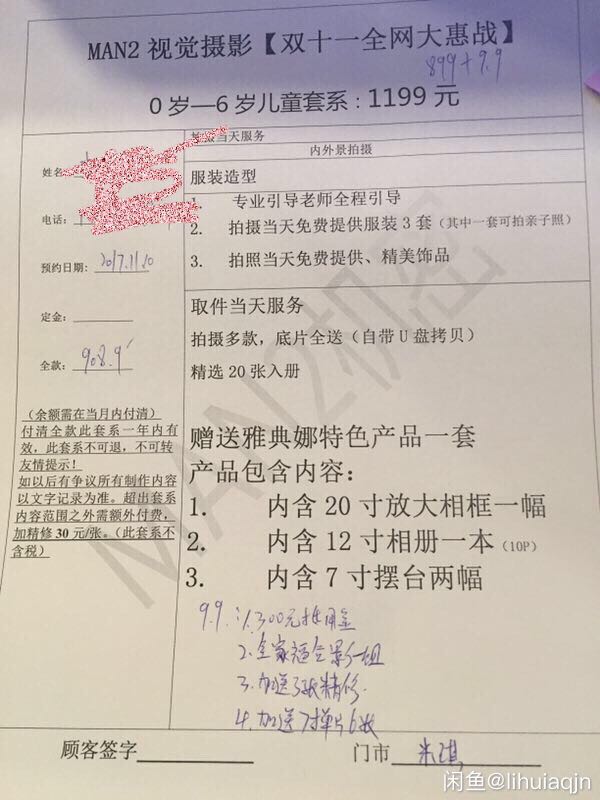 MAN2 视觉摄影【双十一全网大惠战】
899+9.9
0 岁—6 岁儿童套系：1199 元
姓名
电话：
预约日期：2017.11.20
定金：
全款：908.9
（余额需在当月内付清）
付清全款此套系一年内有
效，此套系不可退，不可转
友情提示！
如以后有争议所有制作内容
以文字记录为准。超出套系
内容范围之外需额外付费，
加精修 30 元/张。（此套系不
含税）
拍摄当天服务
内外景拍摄
服装造型
1. 专业引导老师全程引导
2. 拍摄当天免费提供服装 3 套（其中一套可拍亲子照）
3. 拍照当天免费提供、精美饰品
取件当天服务
拍摄多款，底片全送（自带 U 盘拷贝）
精选 20 张入册
赠送雅典娜特色产品一套
产品包含内容：
1. 内含 20 寸放大相框一幅
2. 内含 12 寸相册一本（10P）
3. 内含 7 寸摆台两幅
9.9：1.300元抵用金
2.全家福合影一组
3.加送3张精修
4.加送7寸单片6张
顾客签字
门市
MAN2机密
闲鱼@lihuiaqjn